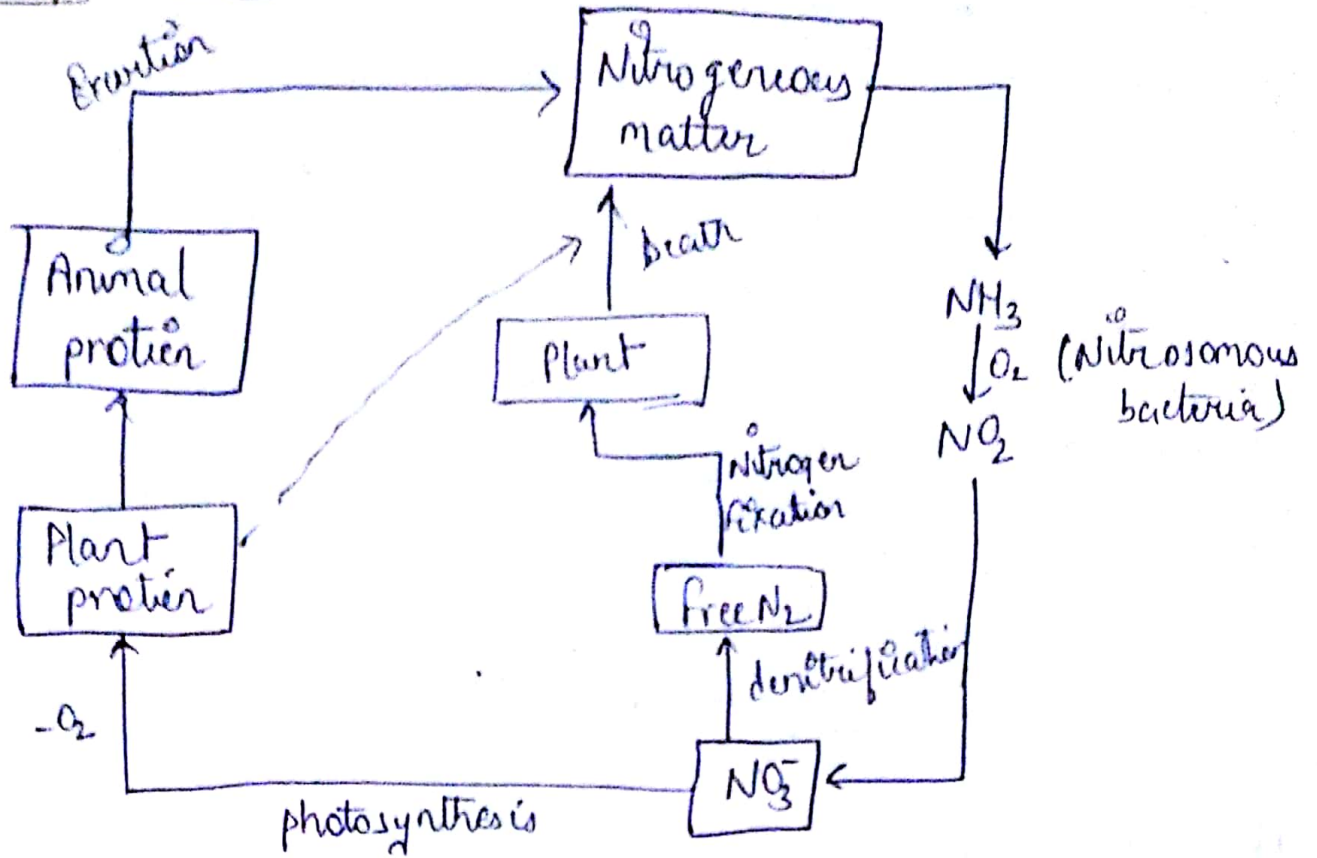 Nitrogeneous
matter
Death
Animal
protien
Plant
NH3
O2 (Nitrosomous
bacteria)
NO2
Nitrogen
fixation
Plant
protien
free N2
denitrification
-O2
NO3-
photosynthesis